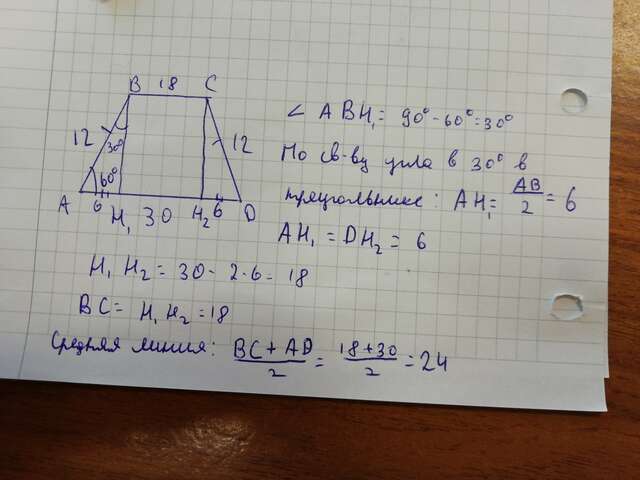 B 18 C
12
30°
12
60°
A 6 H₁ 30 H₂ 6 D
∠ ABH₁ = 90° - 60° = 30°
По св-ву угла в 30° в
треугольнике: AH₁ = AB/2 = 6
AH₁ = DH₂ = 6
H₁ H₂ = 30 - 2·6 = 18
BC = H₁ H₂ = 18
Средняя линия: BC + AD/2 = 18+30/2 = 24